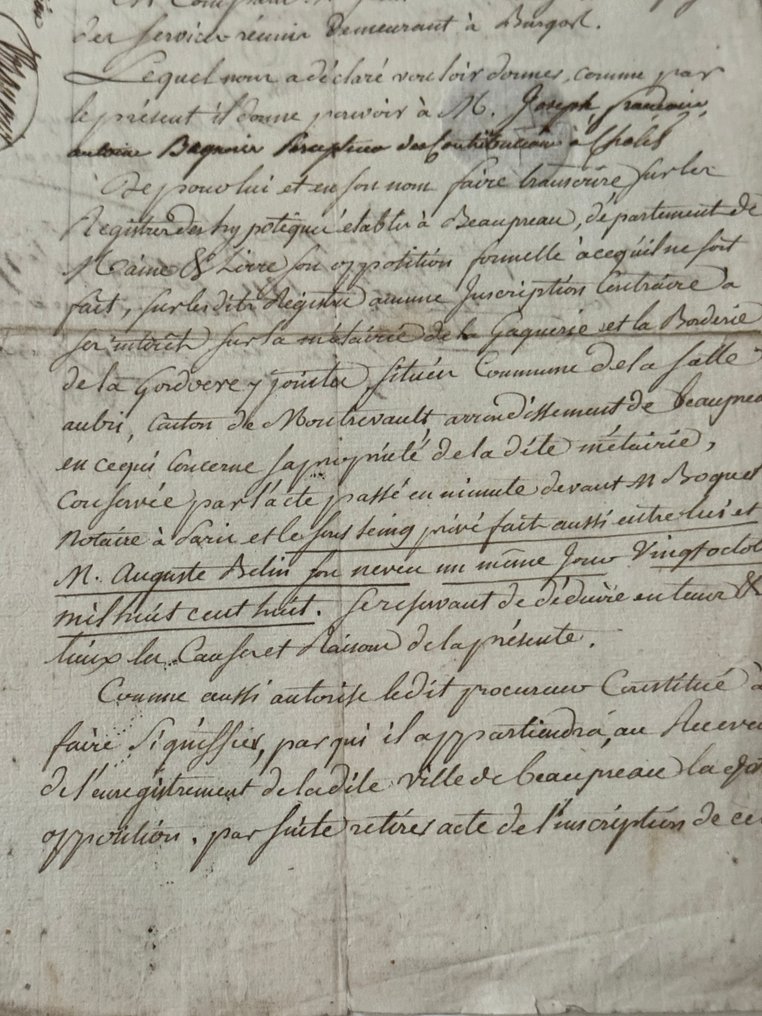 des Services réunis Demeurant à Burgos.
Lequel nous a déclaré vouloir donner, comme par
le présent il donne pouvoir à M. Joseph françois
antoine Percepteur des Contributions à Cholet
De pour lui et en son nom faire transcrire sur les
Registres des hypotéques établis à Beaupreau, département de
Maine & Loire son opposition formelle à cequ'il ne soit
fait, sur lesdits Registres aucune Inscription Contraire à
ses intérêts sur la métairie de la Gaquerie et la Borderie
de la y jointe, située Commune de la Salle
aubri, Canton de Montrevault, arrondissement de beaupreau
en cequi Concerne sa propriété de la dite métairie,
Conservée par l'acte passé en minute devant M Boquet
Notaire à Paris et le sous seing privé fait aussi entre lui et
M. Auguste Belin son neveu un même Jour Vingt octob
mil huit cent huit. Se réservant de déduire en tems &
lieux les Causes et Raisons de la présente.
Comme aussi autorise ledit procureur Constitué à
faire Signiffier, par qui il appartiendra, au Receveu
de l'enregistrement de ladite ville de beaupreau la
opposition. par suite retirer acte de l'inscription de ce